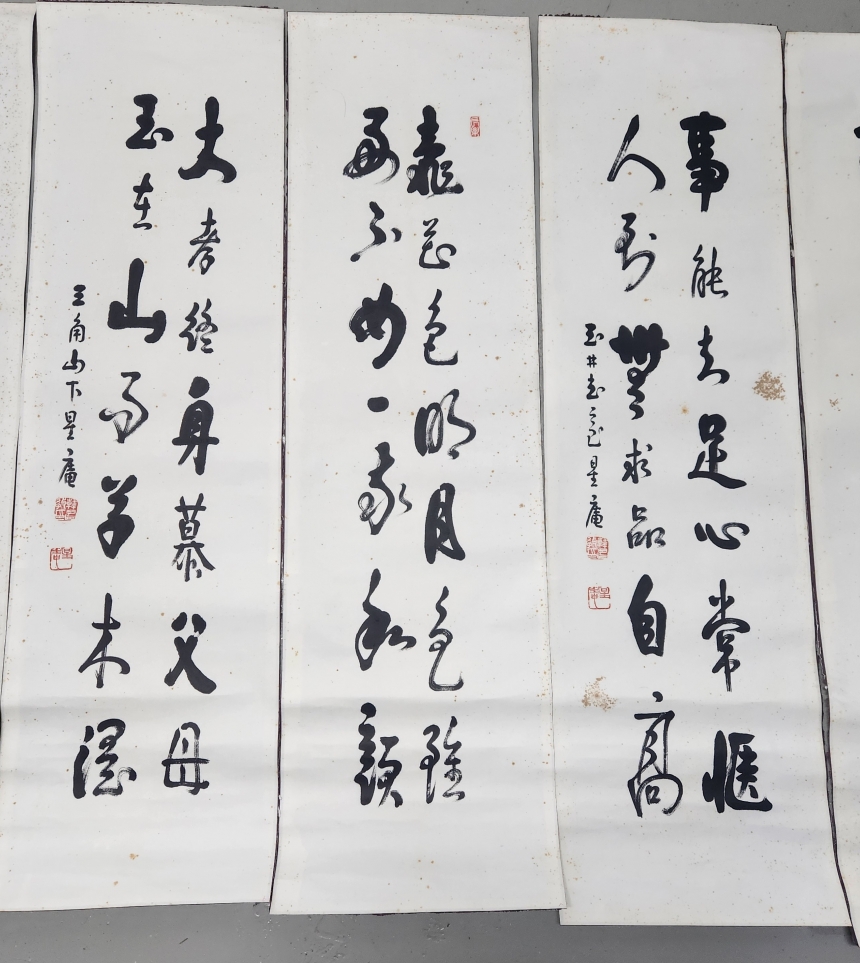 事能知足心常愜
人到無求品自高
玉井
昰庵
花色明月色雖
不如一家和顏
大孝終身慕父母
玉在山而草木潤
三角山下昰庵